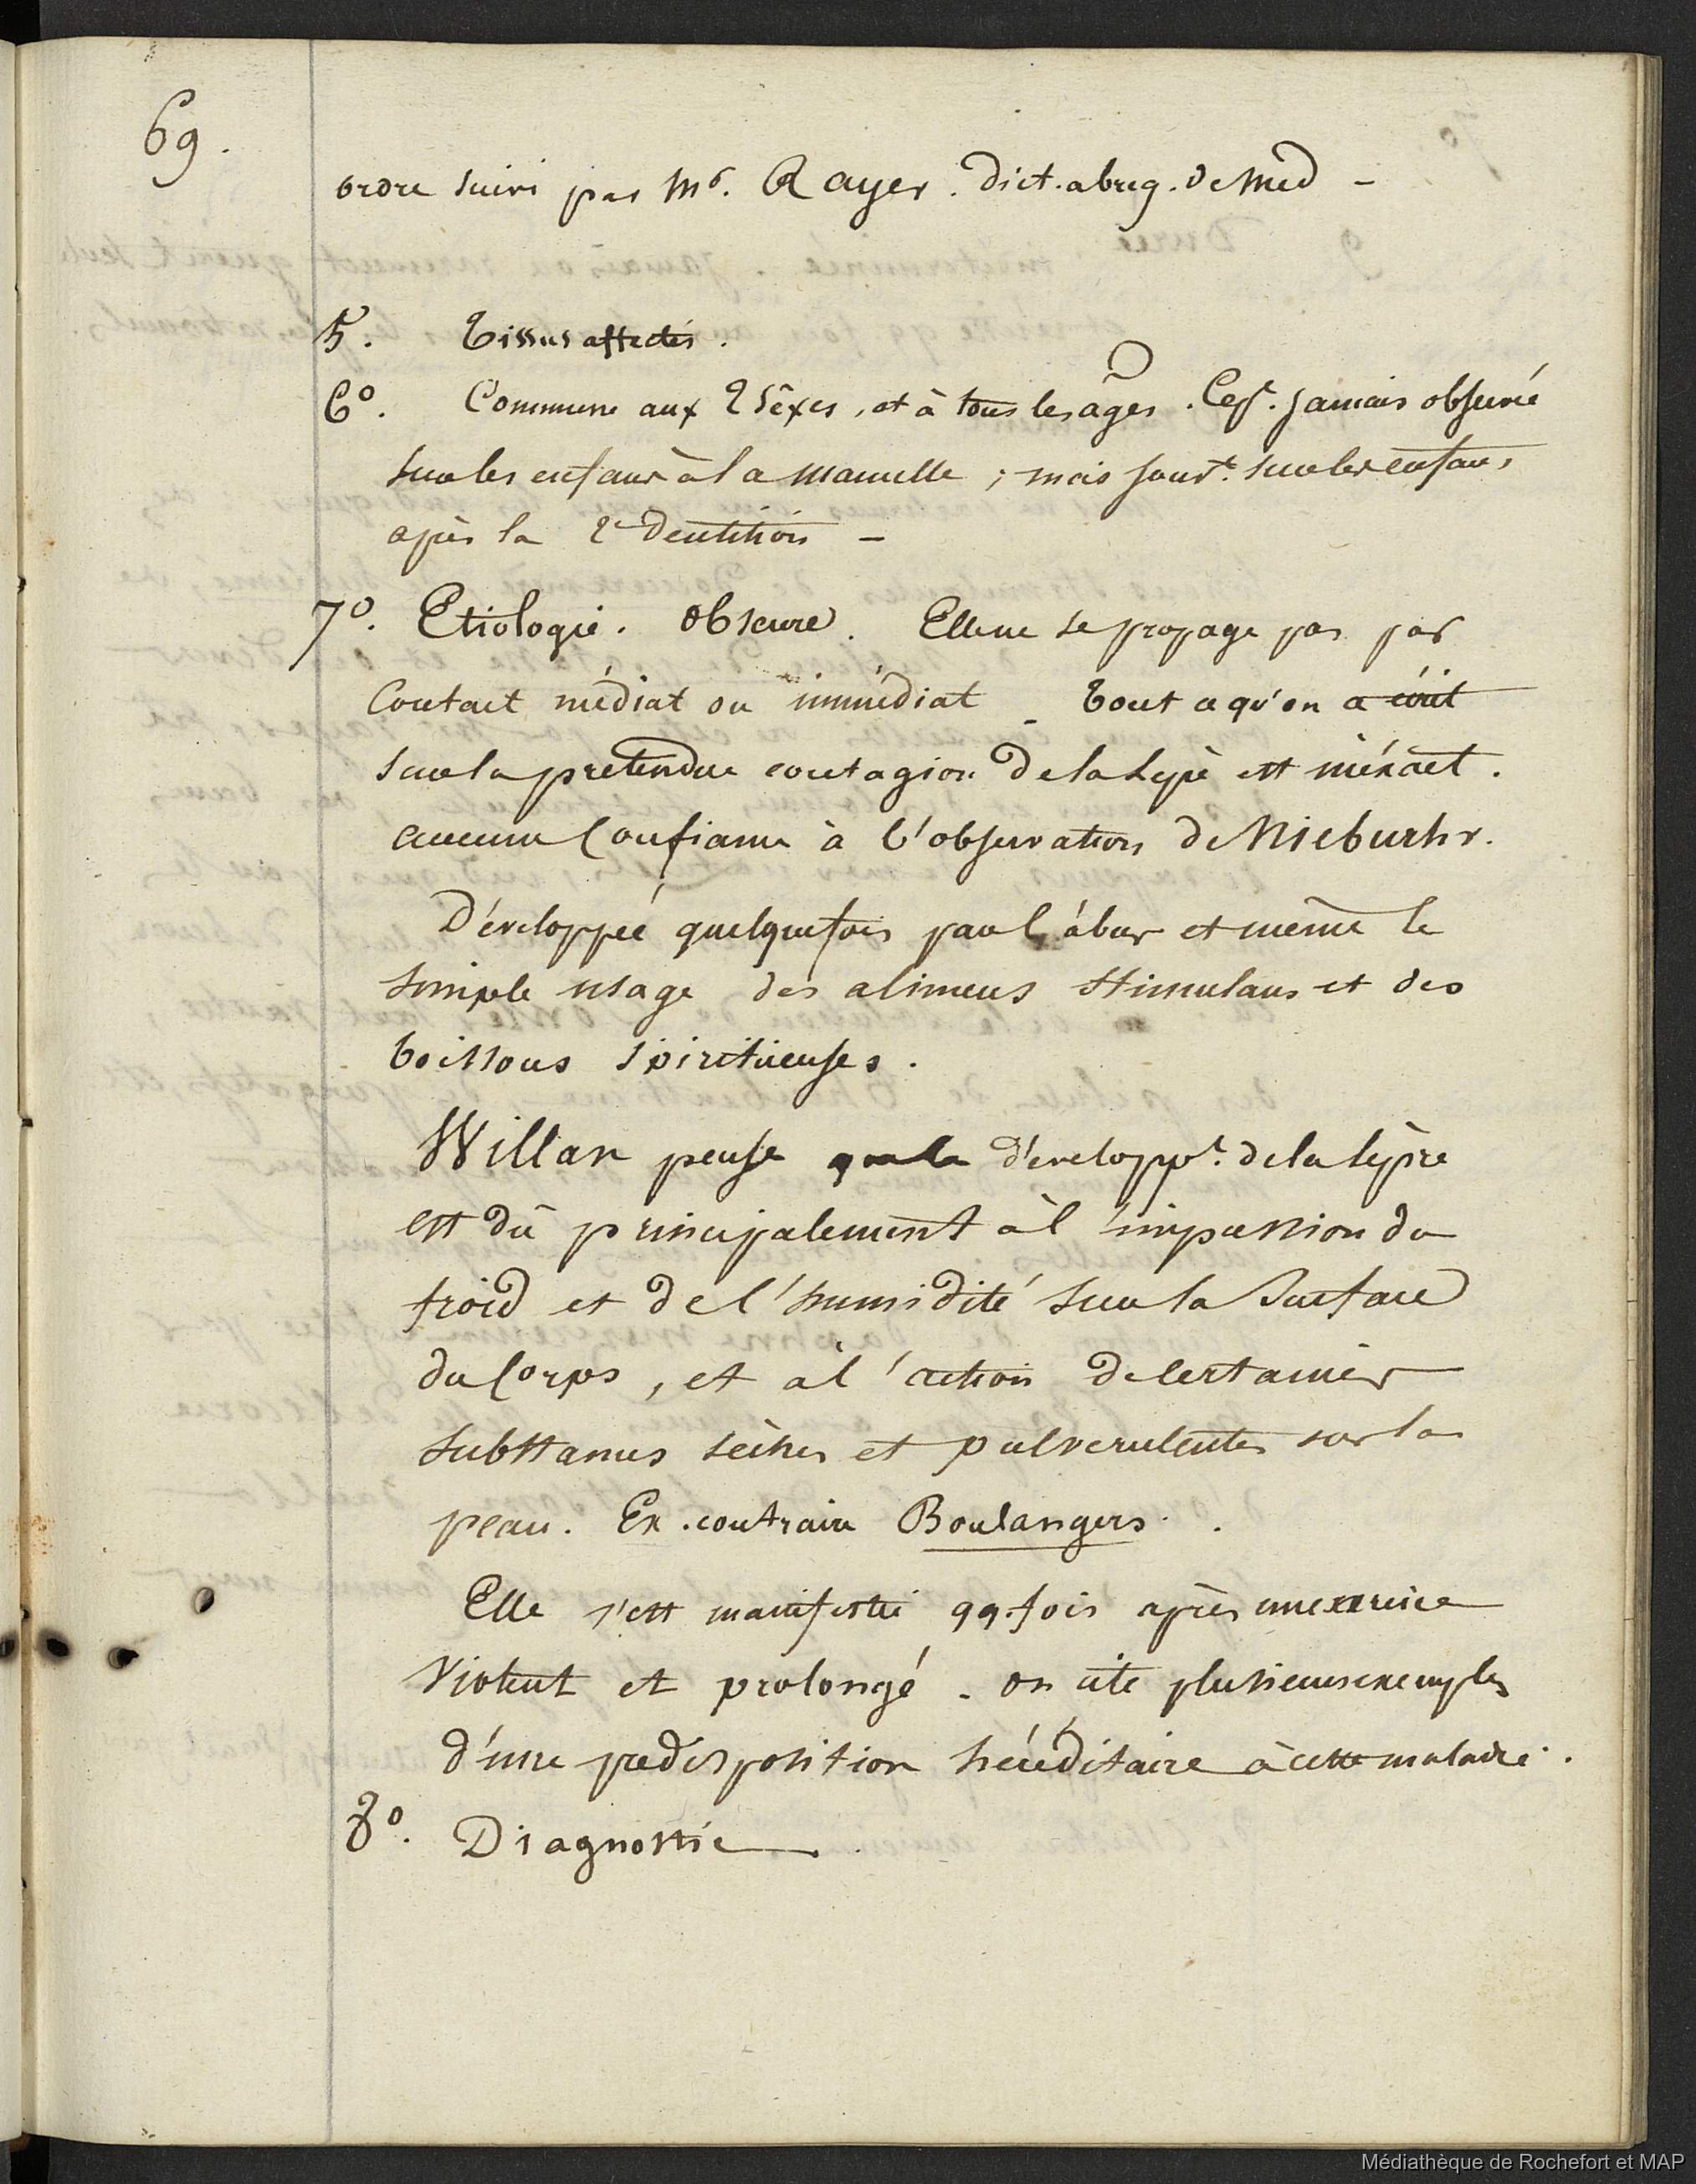 69.
ordre suivi par Mr. Rayer. Dict. abreg. de Med -
5. Tissus affectés.
6º. Commune aux 2 sèxes, et à tous les ages. Cept. jamais observé
sur les enfans à la mamelle ; mais souvt. sur les enfans
après la 2e Dentition -
7º. Etiologie. Obscure. Elle ne se propage pas par
Contact médiat ou immédiat - Tout ce qu'on a écrit
sur la pretendue contagion de la Lèpre est inéxact.
aucune Confiance à l'observation de Nieburhr.
Développée quelquefois par l'abus et même le
simple usage des alimens stimulans et des
boissons spiritueuses.
Willan pense que le développt. de la lèpre
est dû principalement à l'impression du
froid et de l'humidité sur la Surface
du Corps, et à l'action de certaines
substances sèches et pulverulentes sur la
peau. Ex. contraire Boulangers.
Elle s'est manifestée qq. fois après un exercice
Violent et prolongé - on cite plusieurs exemples
d'une predisposition héréditaire à cette maladie.
8º. Diagnostic.
Médiathèque de Rochefort et MAP